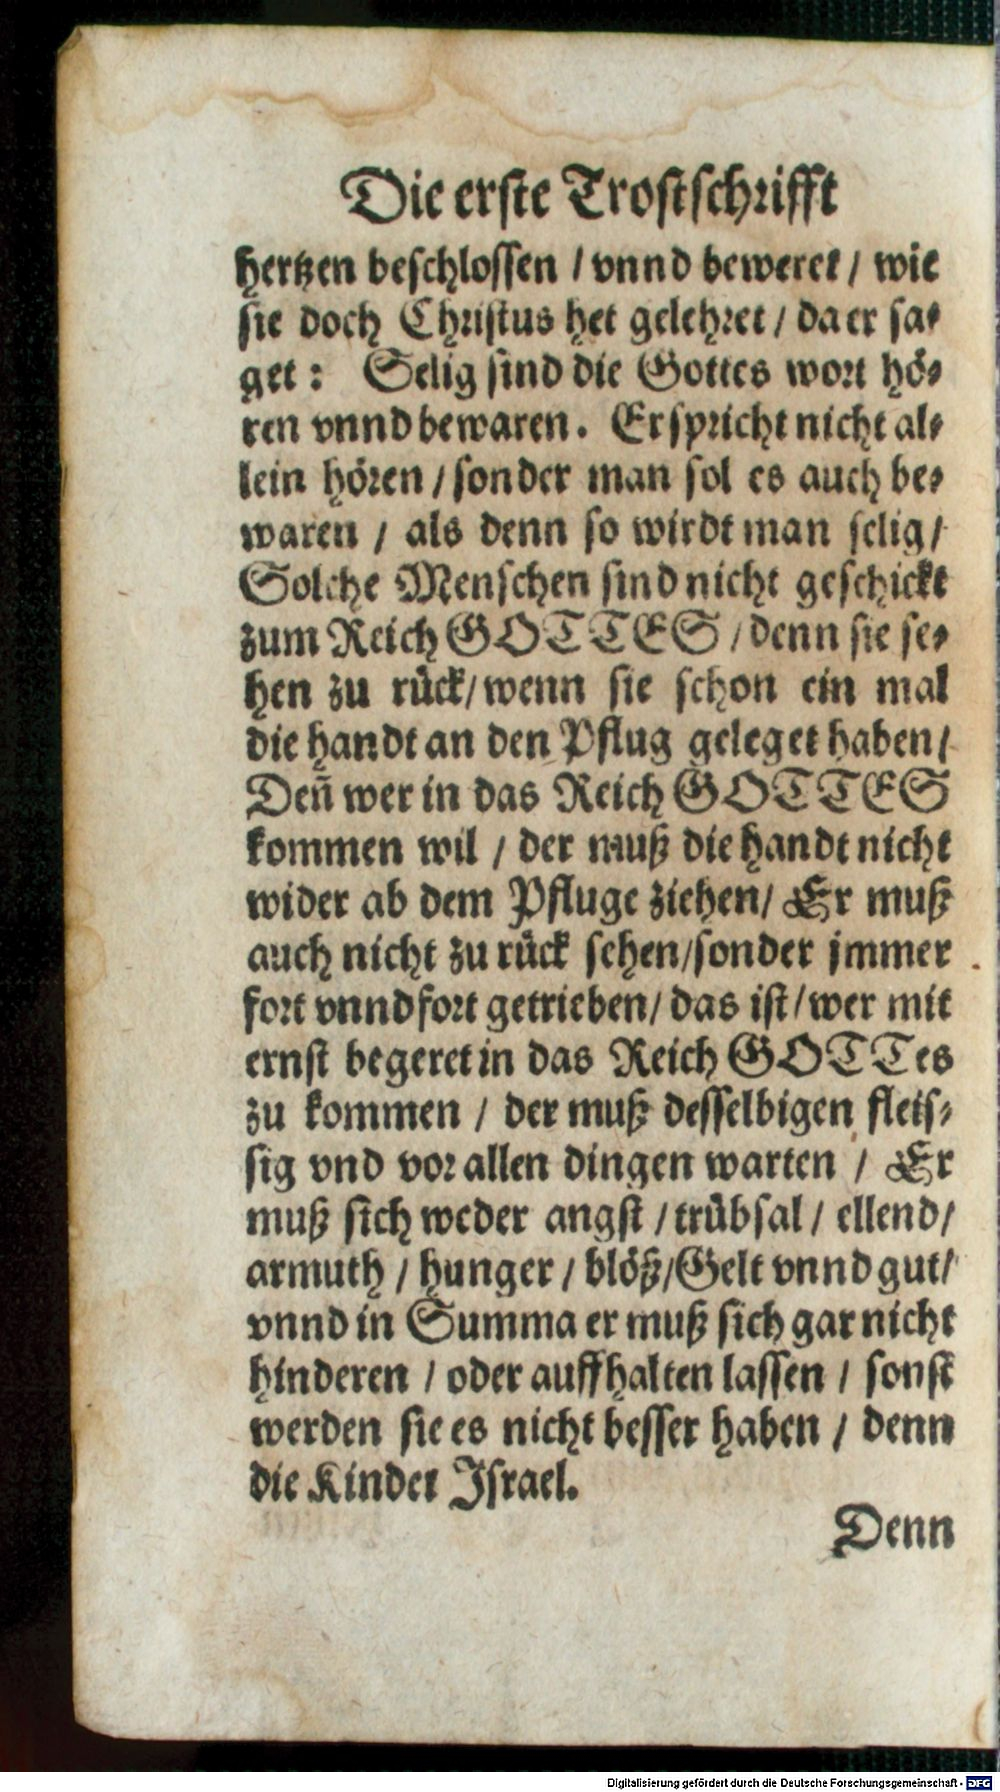 Die erste Trostschrifft
hertzen beschlossen / vnnd beweret / wie
sie doch Christus het gelehret / da er sa⸗
get : Selig sind die Gottes wort hö⸗
ren vnnd bewaren. Er spricht nicht al⸗
lein hören / sonder man sol es auch be⸗
waren / als denn so wirdt man selig /
Solche Menschen sind nicht geschickt
zum Reich GOTTES / denn sie se⸗
hen zu rück / wenn sie schon ein mal
die handt an den Pflug geleget haben /
Deñ wer in das Reich GOTTES
kommen wil / der muß die handt nicht
wider ab dem Pfluge ziehen / Er muß
auch nicht zu rück sehen / sonder jmmer
fort vnnd fort getrieben / das ist / wer mit
ernst begeret in das Reich GOTTes
zu kommen / der muß desselbigen fleis⸗
sig vnd vor allen dingen warten / Er
muß sich weder angst / trübsal / ellend /
armuth / hunger / blöß / Gelt vnnd gut /
vnnd in Summa er muß sich gar nicht
hinderen / oder auffhalten lassen / sonst
werden sie es nicht besser haben / denn
die Kinder Israel.
Denn
Digitalisierung gefördert durch die Deutsche Forschungsgemeinschaft - DFG